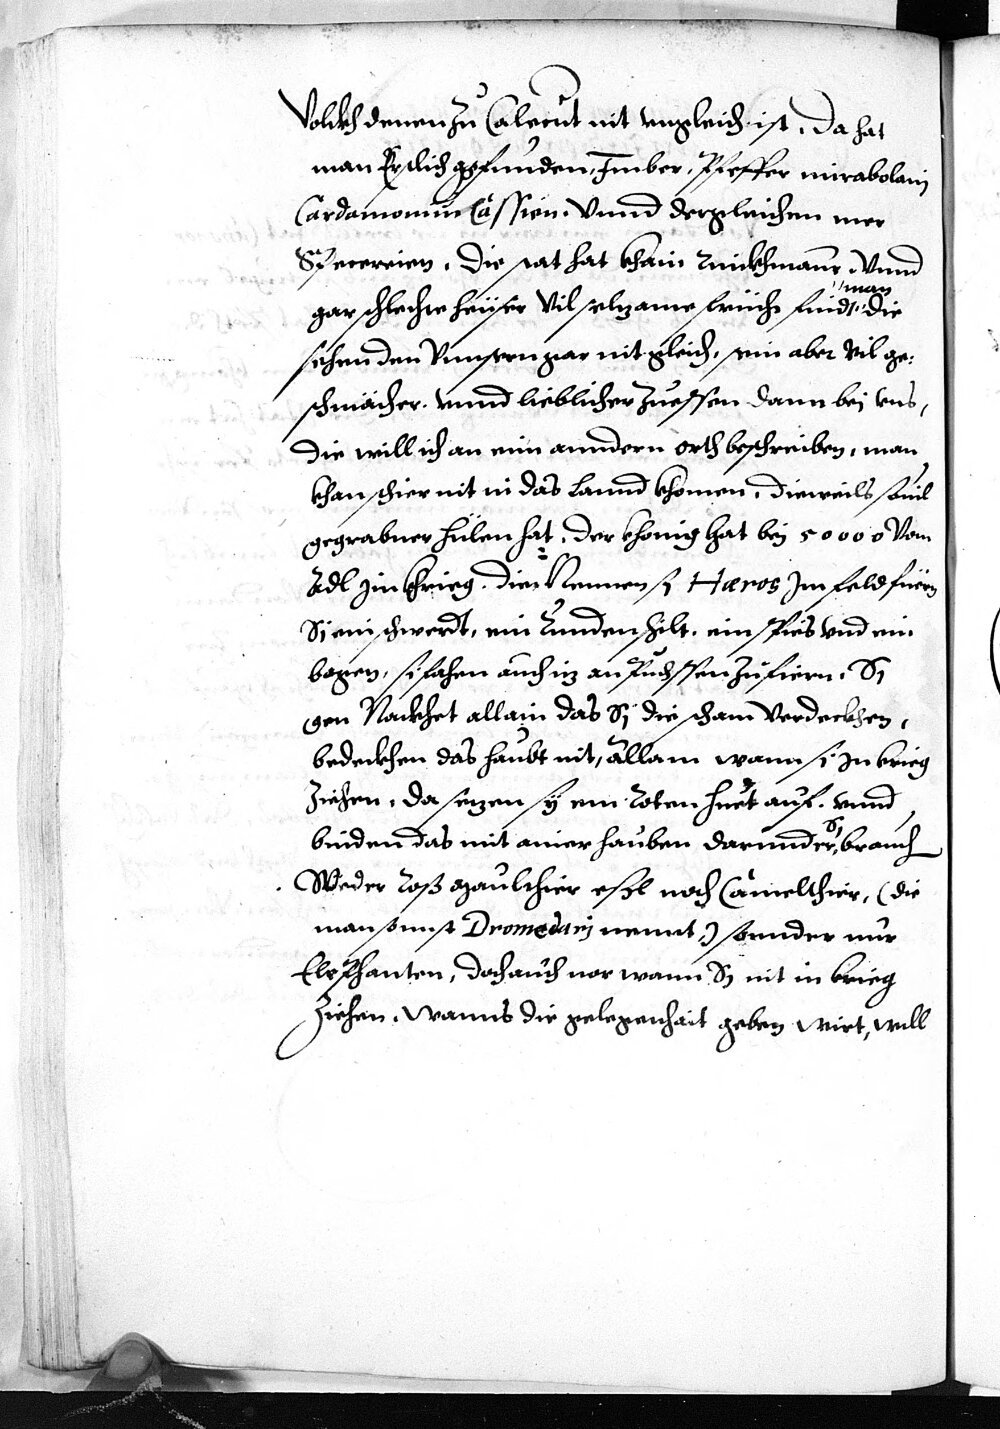 Volckh denen zu Calecut nit ungleich ist. Da hat
man Erstlich gefunden, Imber, Pfeffer mirabolani
Cardamomim Cassien. Vnnd dergleichen mer
Specereien. Die stat hat khain rinckhmaur, Vnnd
man
gar schlechte heüser Vil seltzame früch findt. die
sehen den Vnnsern gar nit gleich, sein aber Vil ge=
schmächer. vnnd lieblicher zu essen dann bej vns,
die will ich an ein anndern orth beschreiben, man
khan schier nit in das Lannd khomen, dieweils souil
gegrabner hülen hat. der khönig hat bej 50000 Vom
Adl zim khrieg. die Nennen sj Hæros Im feld füern
Sj ein schwerdt, ein Runden schilt. ein spies vnd ein
bogen, si fahen auch iz an Puchssen zu fiern. Sj
gen Nackhet allain das Sj die scham Verdeckhen,
bedeckhen das haubt nit, allain wann si In krieg
Ziehen, da setzen sy ein Roten huet auf. vnnd
binden das mit ainer hauben darunnder,
Sj
brauch
Weder Roß Maulthier esl noch Camelthier, (die
man sunst Dromedarj nennt,) sonnder nur
Elephanten, doch auch nor wann Sj nit in krieg
Ziehen. Wanns die gelegenhait geben wirt, will